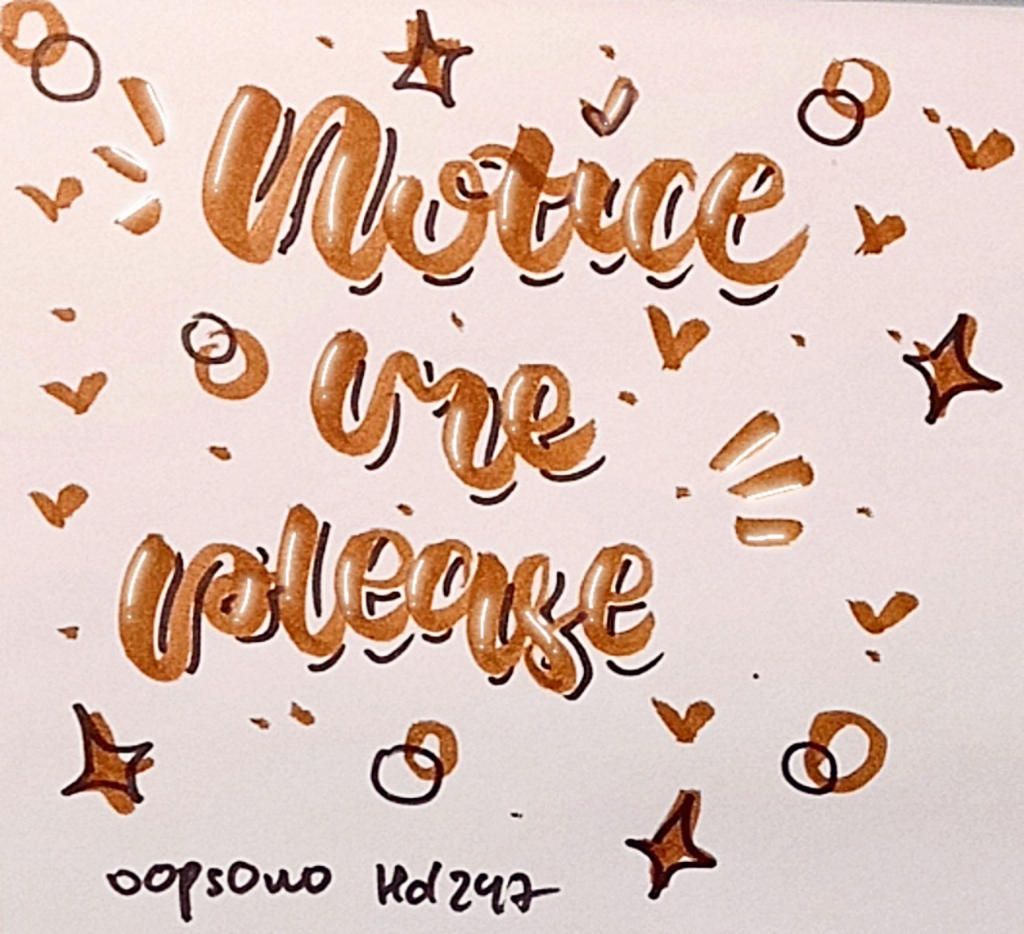 Notice
me
please
oopsOwO Hd247